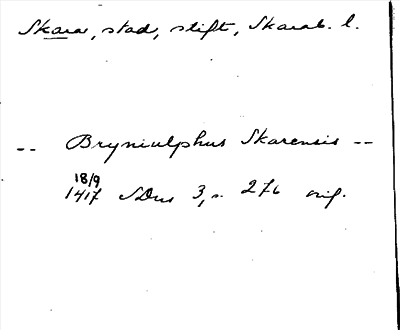 Skara, stad, stift, Skarab. l.
-- Bryniulphus Skarensis --
18/9
1417 SDns 3, s. 276 orig.